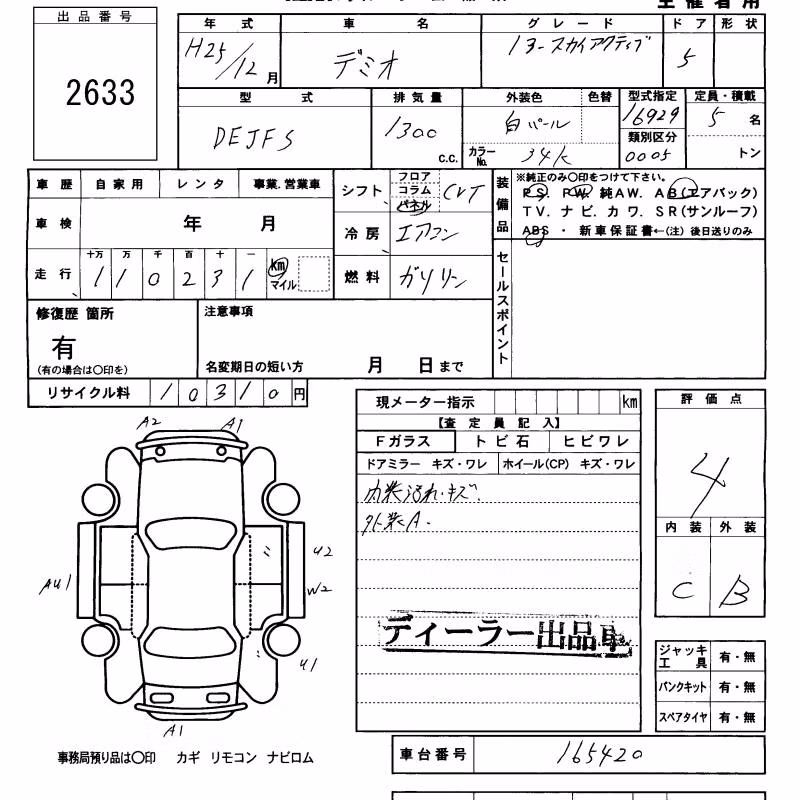 出品番号
2633
年式 車名 グレード ドア 形状
H25/12月 デミオ 13-スカイアクティブ 5
型式 排気量 外装色 色替 型式指定 定員・積載
DEJFS 1300 C.C. 白パール 16929 5 名
カラーNo. 34K 類別区分 0005 トン
車歴 自家用 レンタ 事業.営業車
車検 年 月
十万 万 千 百 十 一
走行 1 1 0 2 3 1 km マイル
シフト フロア コラム パネル CVT
冷房 エアコン
燃料 ガソリン
装備品
※純正のみ〇印をつけて下さい。
PS. PW. 純AW. AB(エアバック)
TV. ナビ. カワ. SR(サンルーフ)
ABS ・ 新車保証書←(注) 後日送りのみ
セールスポイント
修復歴 箇所
有
(有の場合は〇印を)
注意事項
名変期日の短い方 月 日まで
リサイクル料 10310 円
現メーター指示 km
【査定員記入】
Fガラス トビ石 ヒビワレ
ドアミラー キズ・ワレ ホイール(CP) キズ・ワレ
内装汚れ・キズ.
外装A.
ディーラー出品車
評価点
4
内装 外装
C B
A2 A1
U2
AU1 W2
U1
A1
ジャッキ工具 有・無
パンクキット 有・無
スペアタイヤ 有・無
事務局預り品は〇印 カギ リモコン ナビロム
車台番号 165420